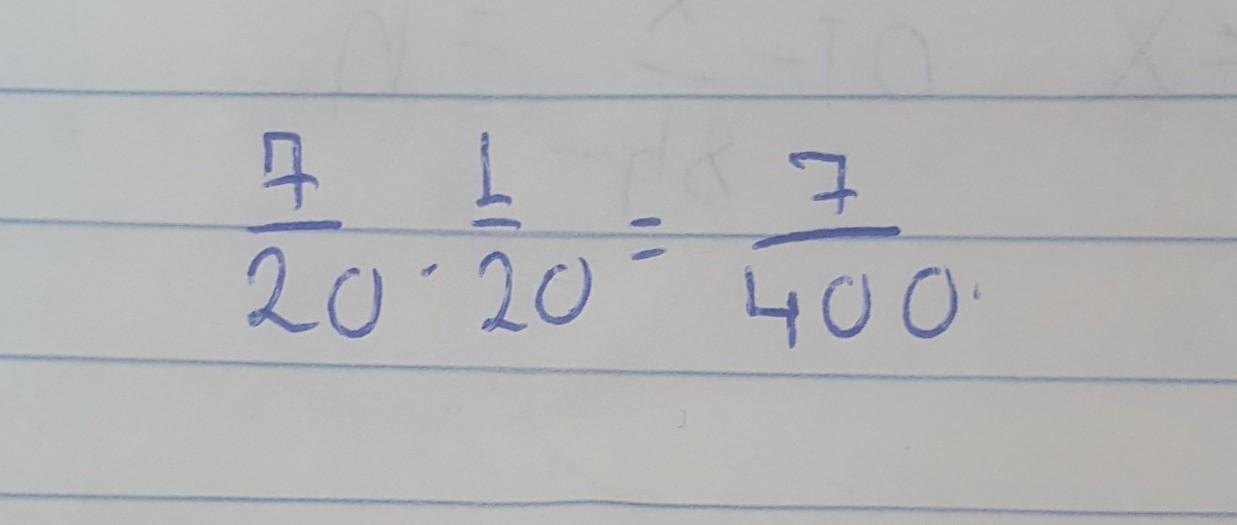 7/20 · 1/20 = 7/400